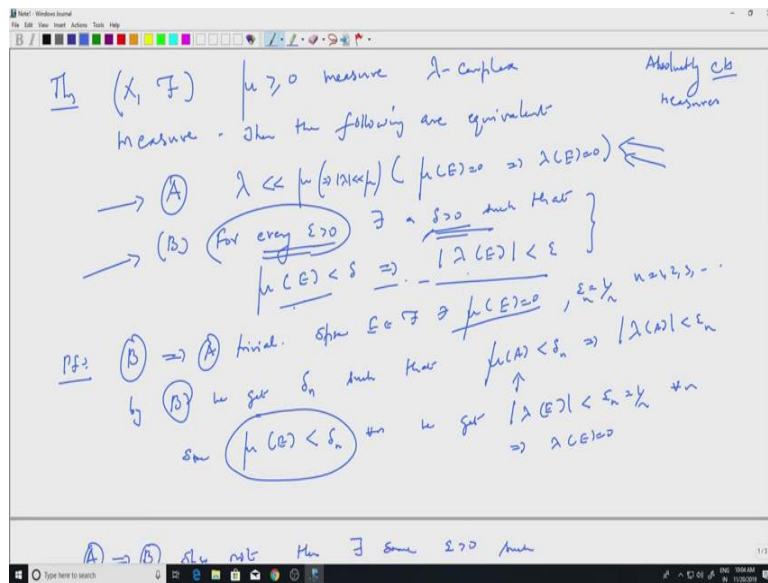 Note1 - Windows Journal
File Edit View Insert Actions Tools Help
Th (X, F) μ ≥ 0 measure λ - complex
Absolutely cts
measures
measure. Then the following are equivalent
→ (A) λ << μ (=> |λ| << μ) ( μ(E)=0 => λ(E)=0 )
→ (B) For every ε>0 ∃ a δ>0 such that
μ(E) < δ => |λ(E)| < ε
Pf: (B) => (A) trivial. Spse E ∈ F ∋ μ(E)=0, ε_n = 1/n n=1,2,3,...
by (B) we get δ_n such that μ(A) < δ_n => |λ(A)| < ε_n
Since μ(E) < δ_n ∀n we get |λ(E)| < ε_n = 1/n ∀n
=> λ(E)=0
(A) => (B) Spse not then ∃ some ε>0 such
1/3
Type here to search
ENG 10:04 AM
IN 11/20/2019